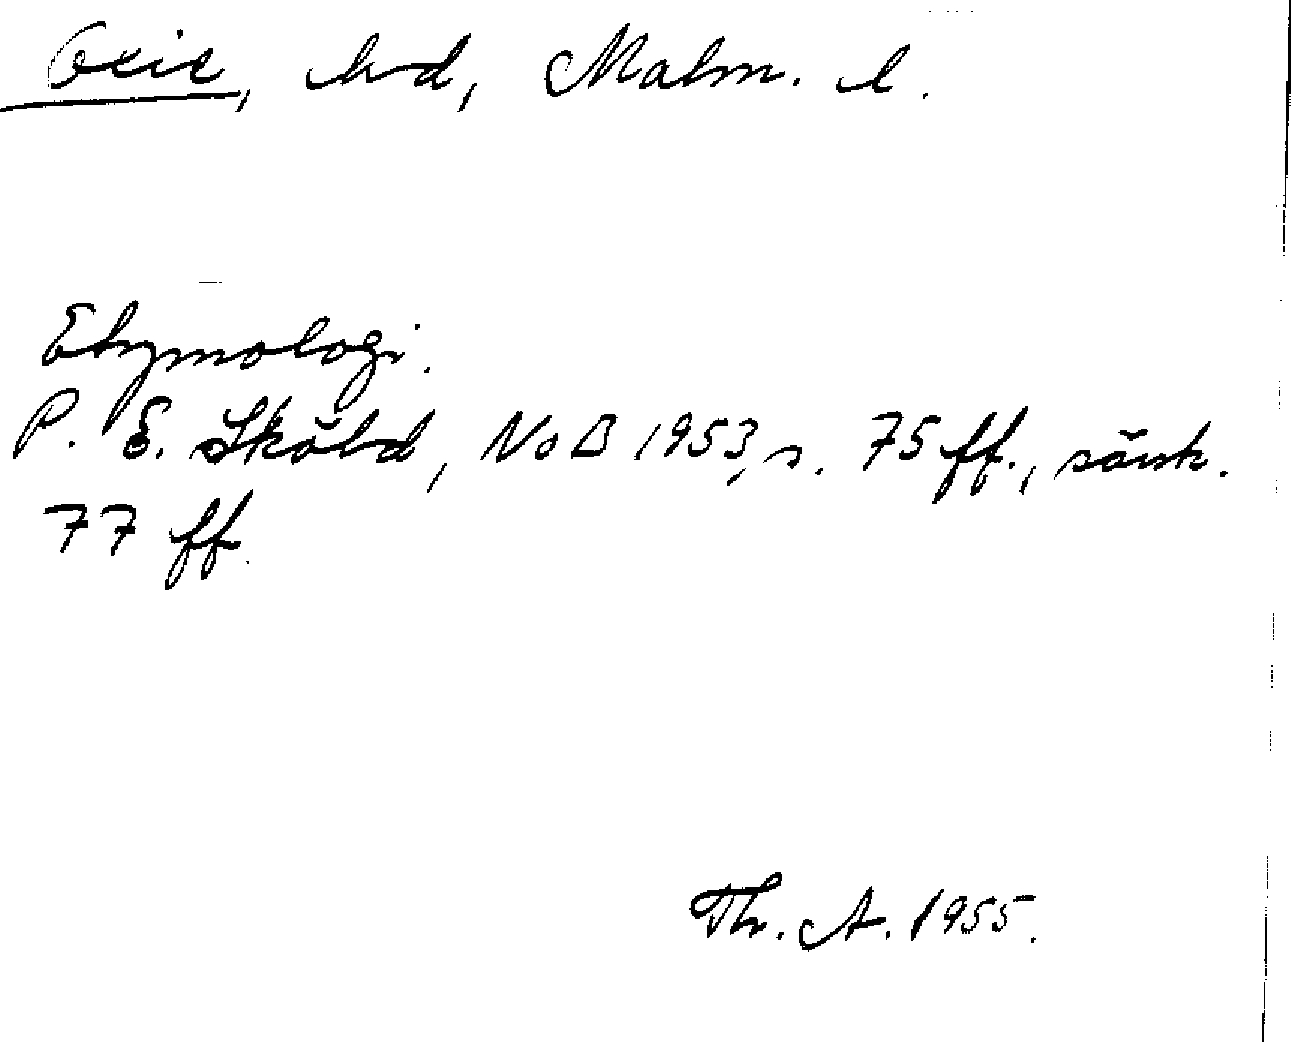 Oxie, hd, Malm. l.
Etymologi.
P. E. Sköld, NoB 1953, s. 75 ff., särsk.
77 ff.
Th. A. 1955.